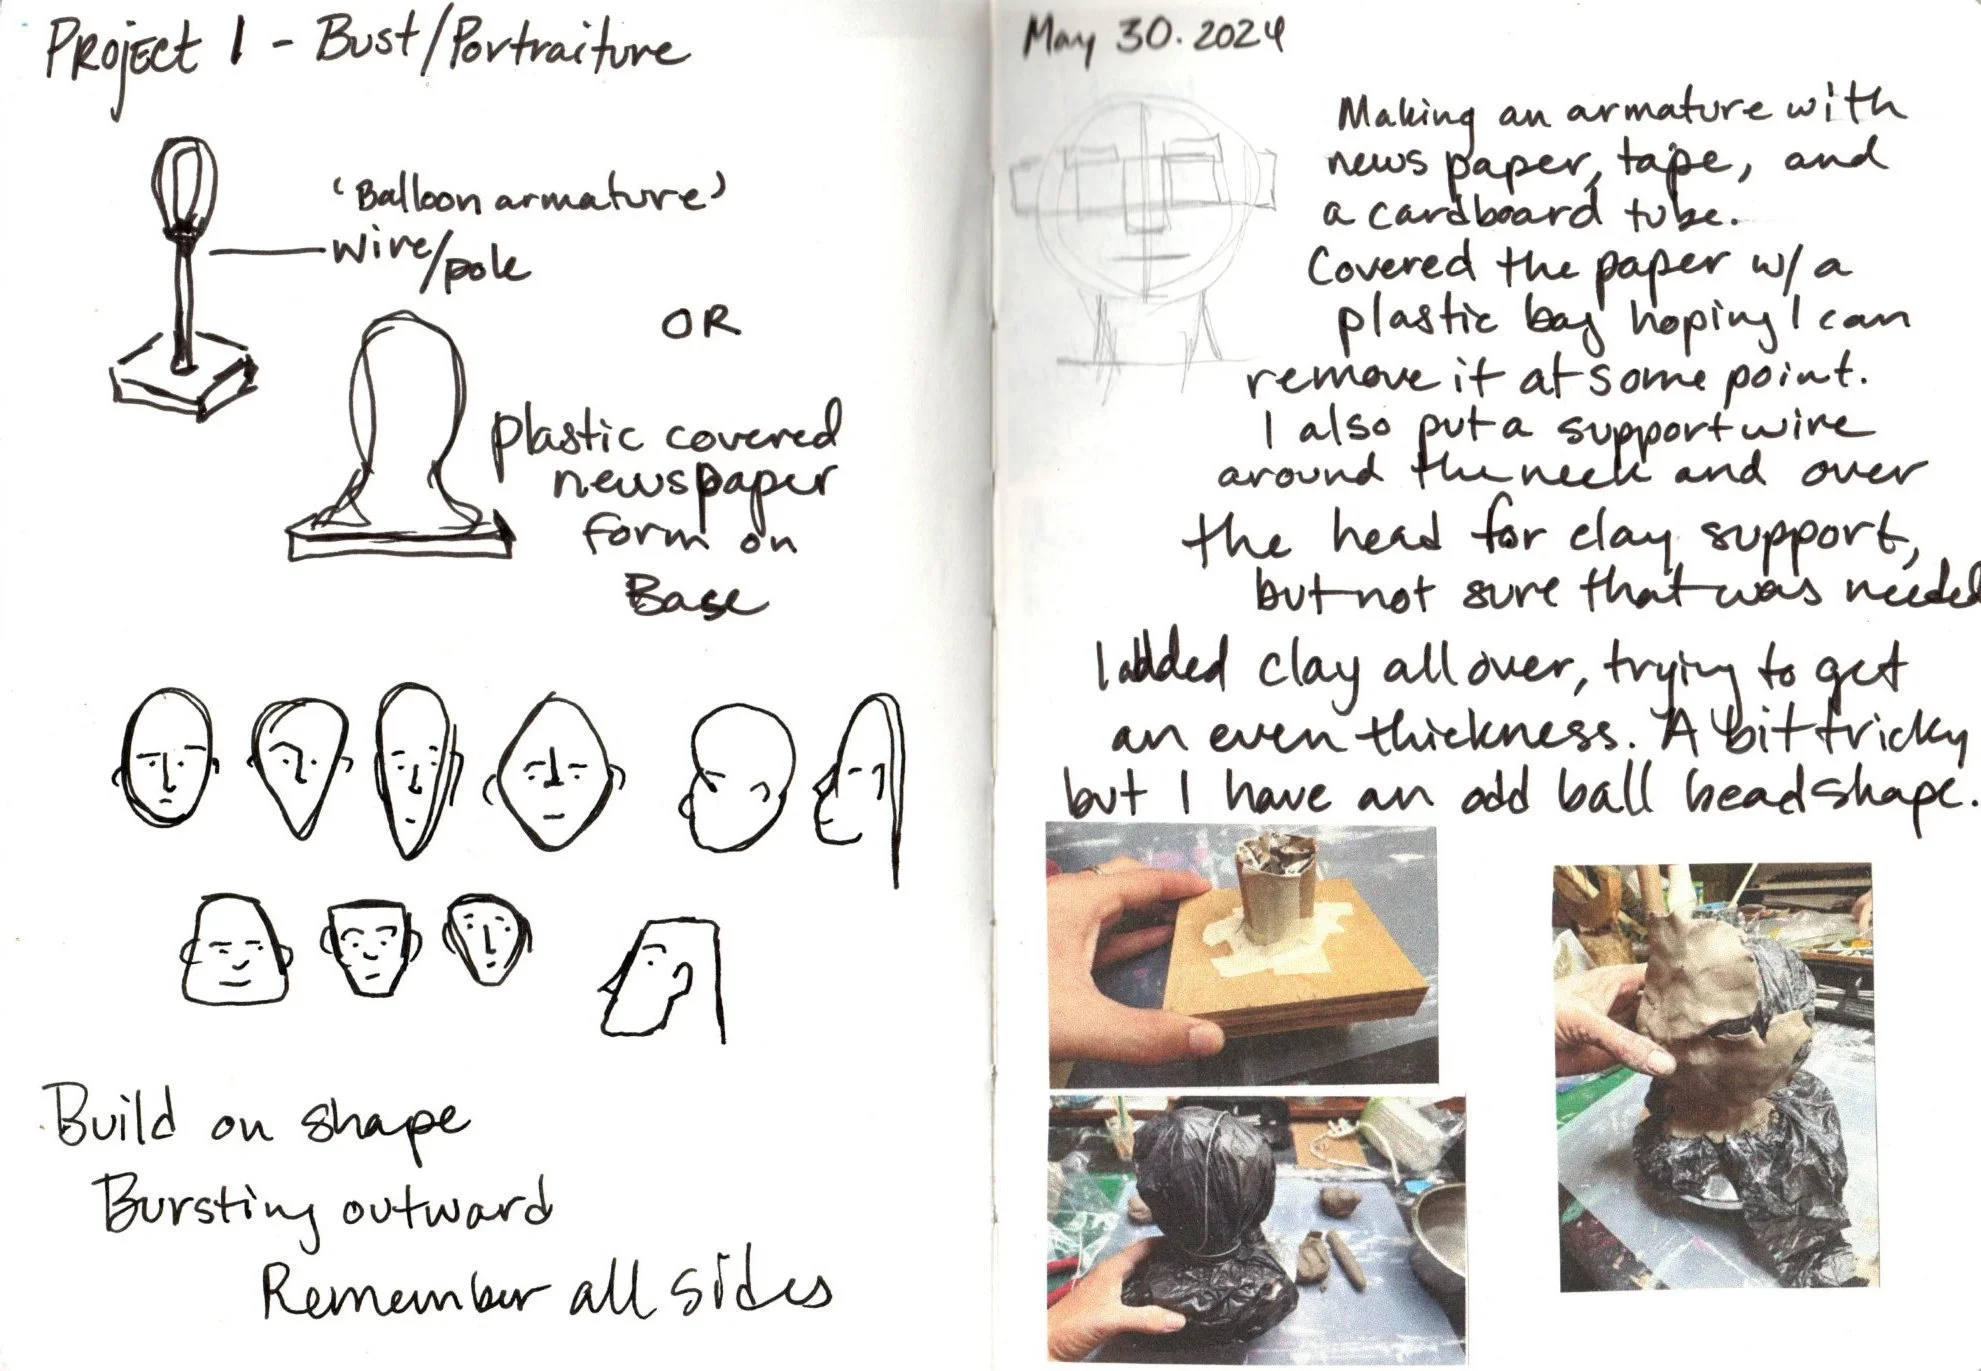 Project 1 - Bust/Portraiture
'Balloon armature'
wire/pole
OR
plastic covered
newspaper
form on
Base
Build on shape
Bursting outward
Remember all sides
May 30. 2024
Making an armature with
news paper, tape, and
a cardboard tube.
Covered the paper w/ a
plastic bag hoping I can
remove it at some point.
I also put a support wire
around the neck and over
the head for clay support,
but not sure that was needed
I added clay all over, trying to get
an even thickness. A bit tricky
but I have an odd ball head shape.